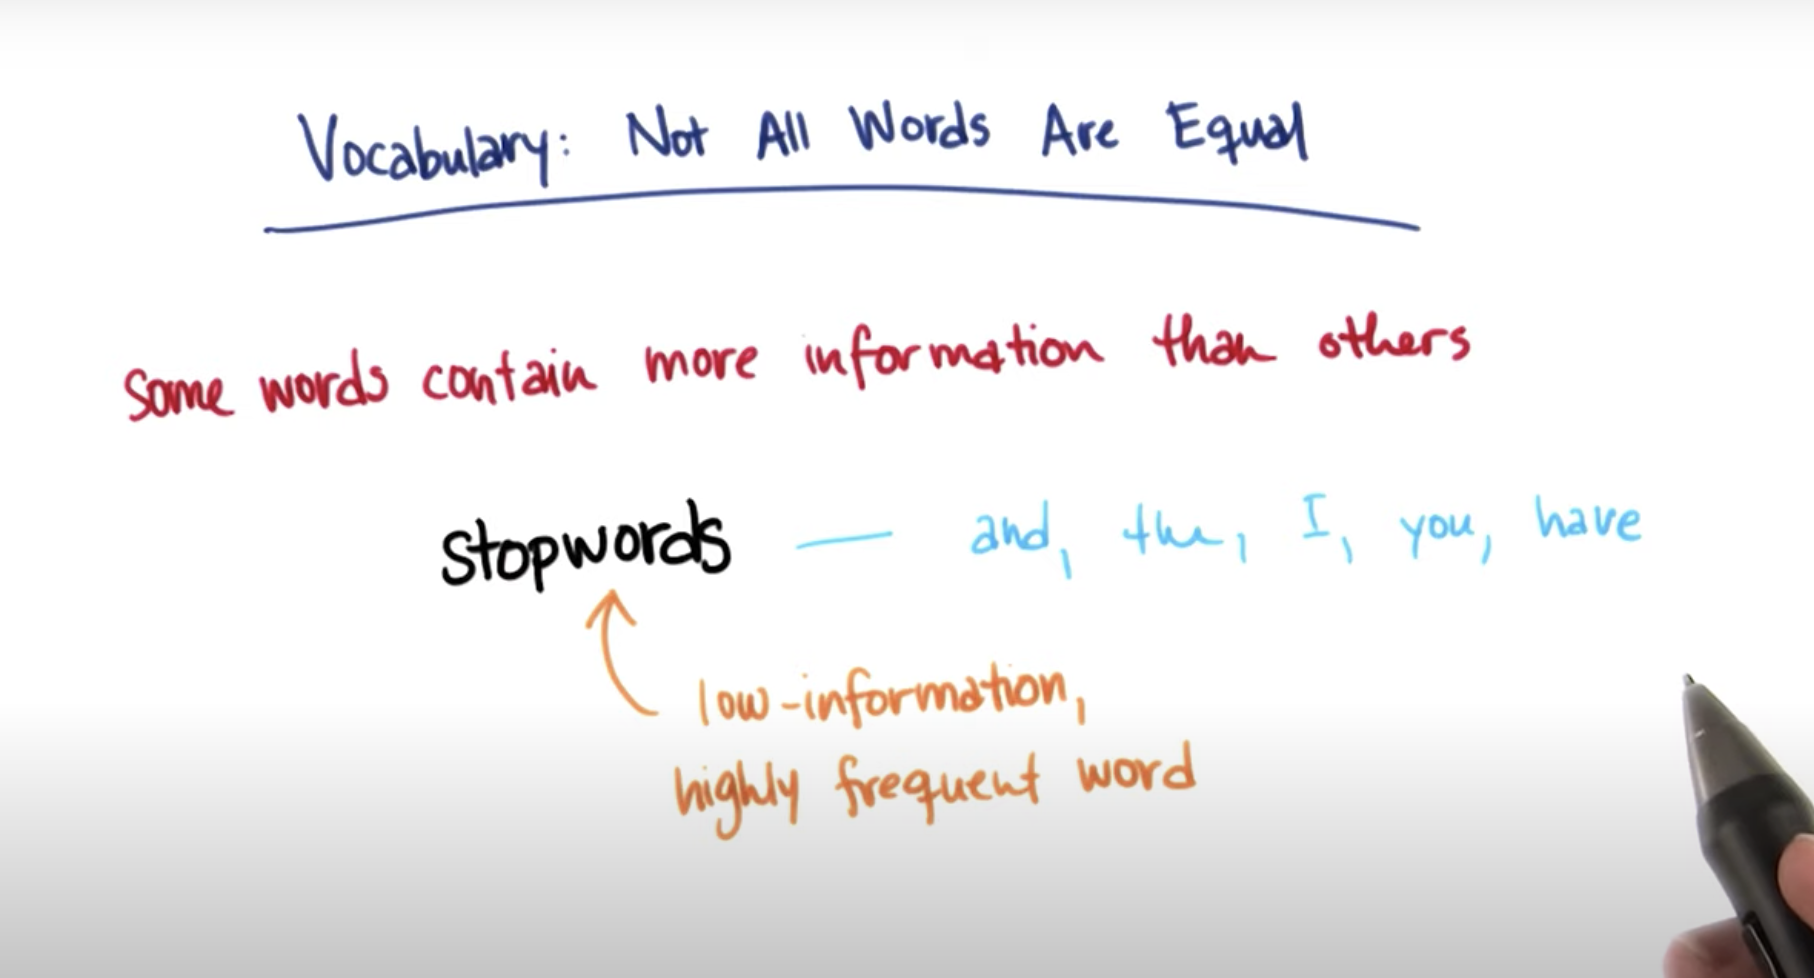 Vocabulary: Not All Words Are Equal
Some words contain more information than others
stopwords — and, the, I, you, have
low-information,
highly frequent word